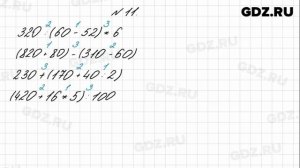 GDZ.RU
№ 11.
320 : (60 - 52) * 6
(820 + 80) - (310 - 60)
230 + (170 + 40 : 2)
(420 + 16 * 5) : 100
GDZ.RU